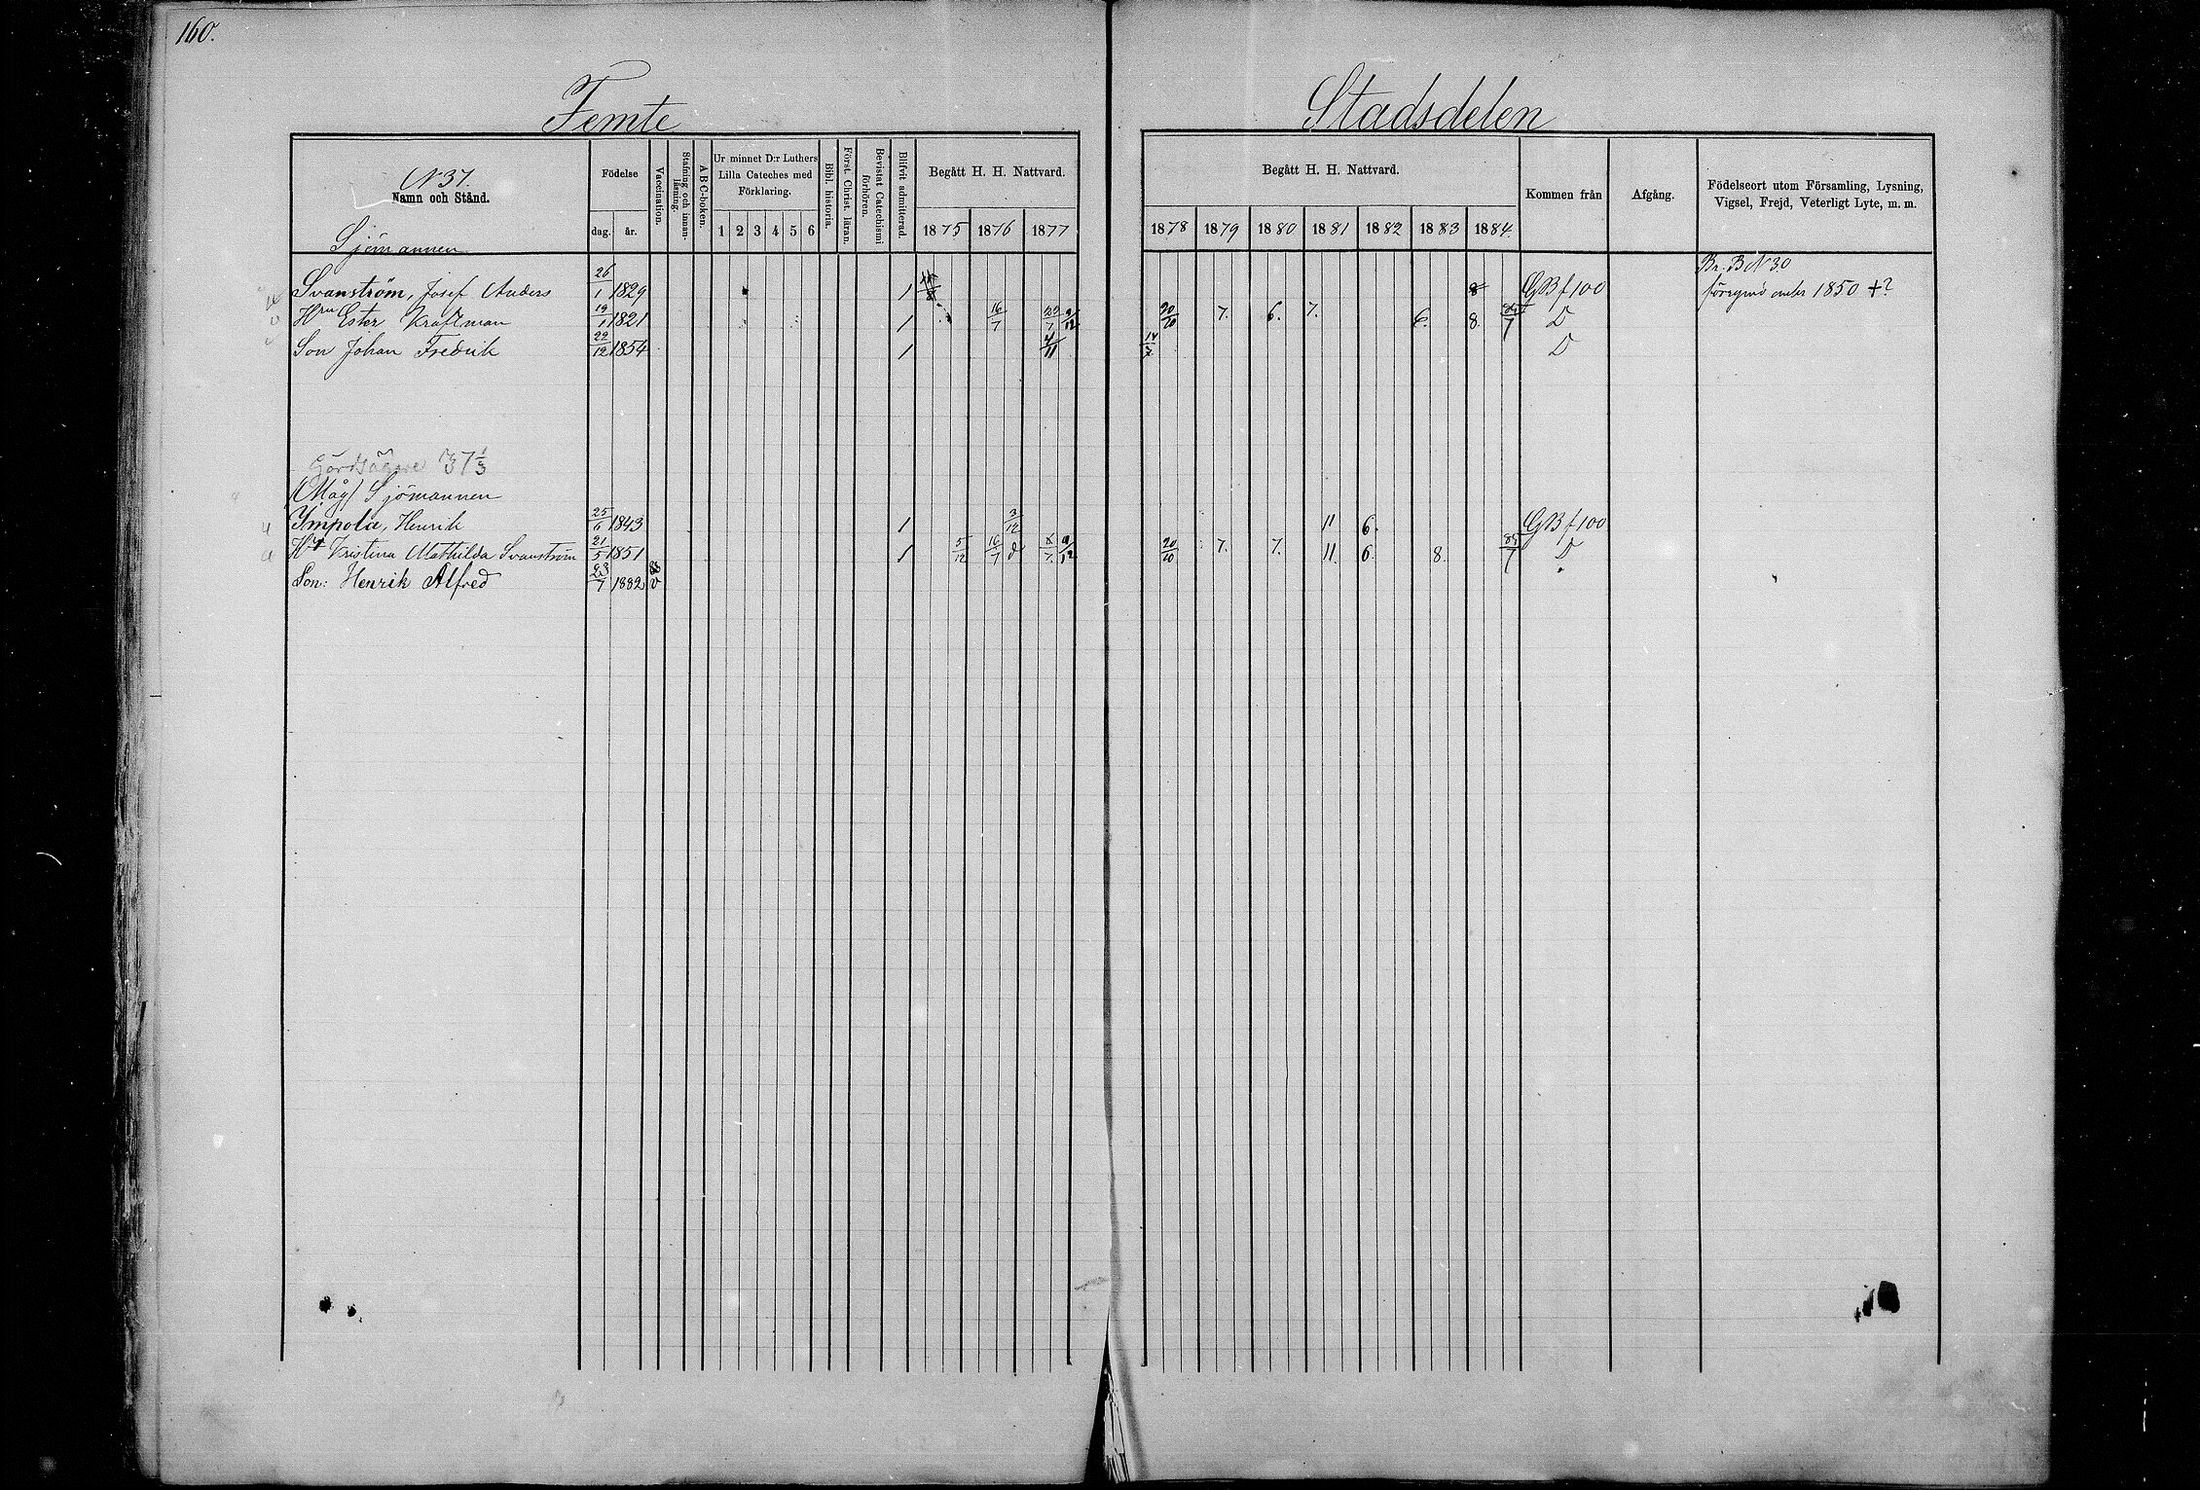 160.
Femte Stadsdelen
N 37.
Namn och Stånd.
Födelse
dag. år.
Vaccination.
Stafning och innan-läsning.
A B C-boken.
Ur minnet D:r Luthers Lilla Cateches med Förklaring.
1 2 3 4 5 6
Bibl. historia.
Först. Christ. läran.
Bevistat Catechismi förhören.
Blifvit admitterad.
Begått H. H. Nattvard.
1875 1876 1877
Begått H. H. Nattvard.
1878 1879 1880 1881 1882 1883 1884.
Kommen från
Afgång.
Födelseort utom Församling, Lysning, Vigsel, Frejd, Veterligt Lyte, m. m.
Sjömannen
Br. B N 30
Svanström, Josef Anders 26/1 1829 1 8 GB f 100 1850 +?
Hru Ester Kraftman 19/1 1821 1 16/7 9/12 20/20 7. 6. 7. 6. 8. D
Son Johan Fredrik 22/12 1854 1 4/11 14/7 D
Gårdsägare 37 1/3
(Måg) Sjömannen
Ympola, Henrik 25/6 1843 1 3/12 11 6. GB f 100
Hu Kristina Mathilda Svanström 21/5 1851 1 5/12 16/7 8/7 9/12 20/20 7. 7. 11. 6. 8. D
Son: Henrik Alfred 23/7 1882 v